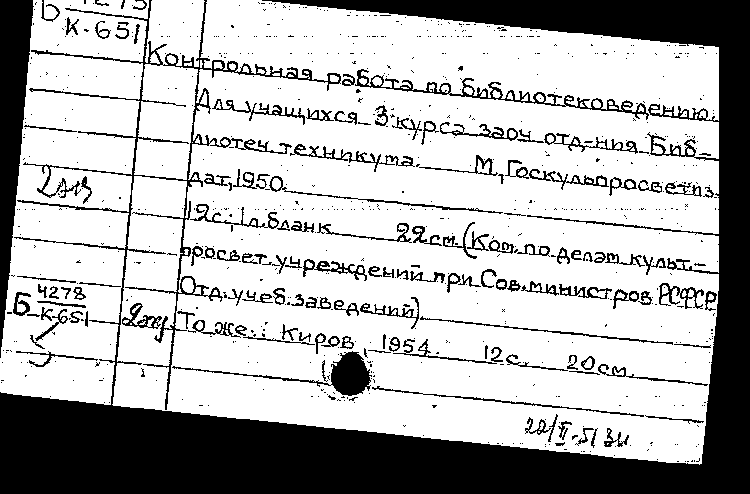 Б 4273
К-651
Контрольная работа по библиотековедению.
Для учащихся 3 курса заоч. отд-ния Биб-
лиотеч. техникума. М., Госкультпросветиз-
дат, 1950.
2 экз
12с.; 1л. бланк 22см. (Ком. по делам культ.-
просвет. учреждений при Сов. министров РСФСР
Отд. учеб. заведений).
Б 4278
К-651
2 экз. То же.: Киров, 1954. 12с. 20см.
22/II-51